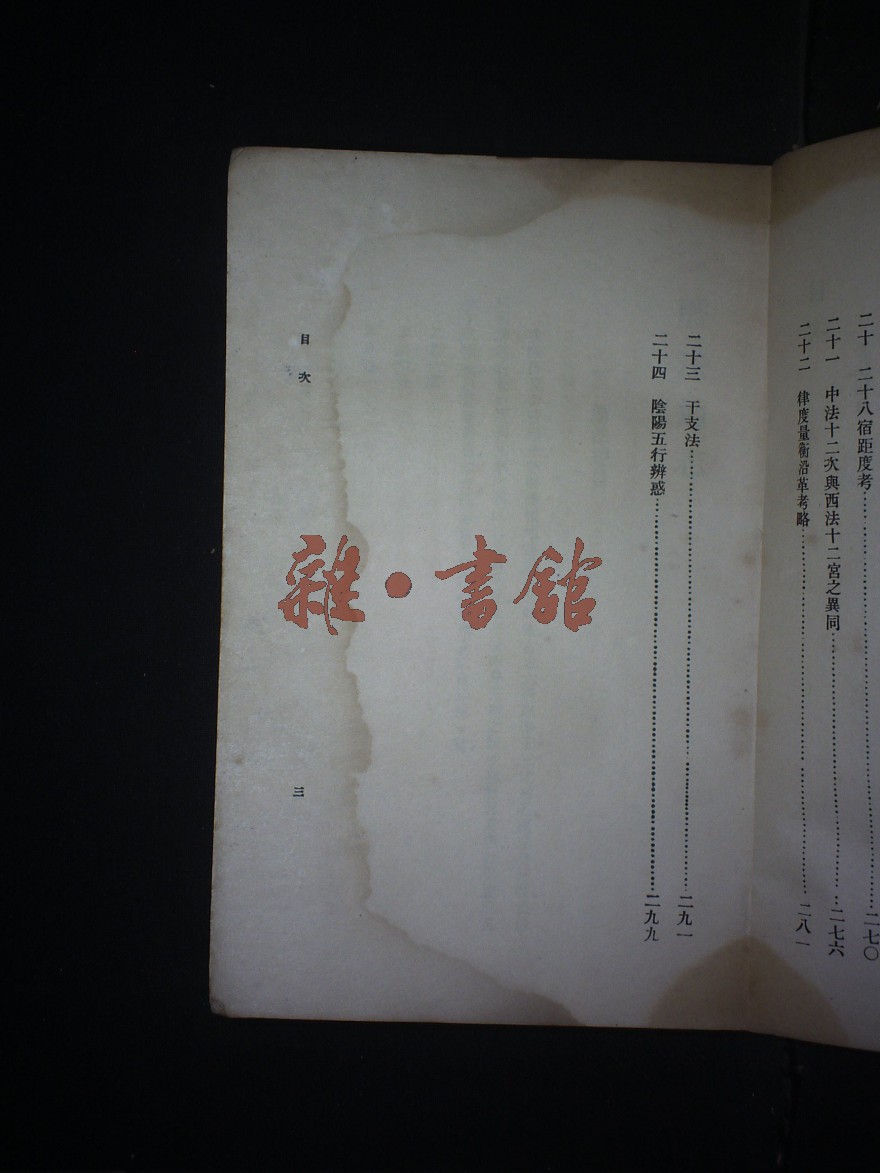 二十 二十八宿距度考……二七〇
二十一 中法十二次與西法十二宮之異同……二七六
二十二 律度量衡沿革考略……二八一
二十三 干支法……二九一
二十四 陰陽五行辨惑……二九九
目次
三
雜·書館